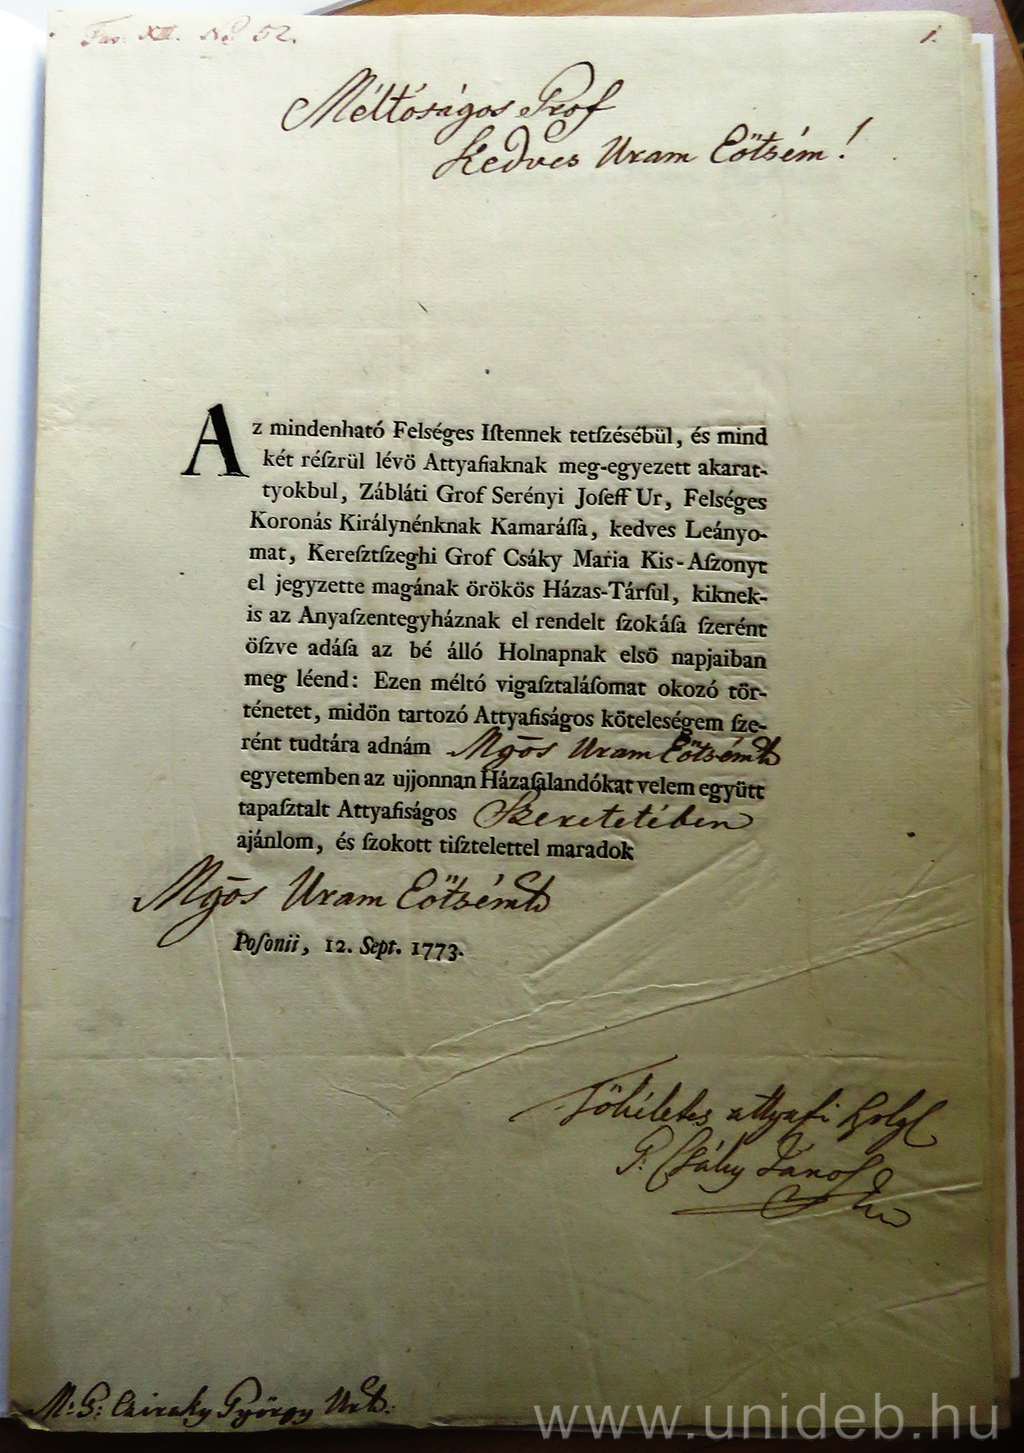 Fas: XIII. No. 52.
1.
Méltóságos Grof
Kedves Uram Eötsém!
Az mindenható Felséges Iſtennek tetſzéséból, és mind
két réſzrül lévö Attyafiaknak meg-egyezett akarat-
tyokbul, Zábláti Grof Serényi Joſeff Ur, Felséges
Koronás Királynénknak Kamaráſſa, kedves Leányo-
mat, Kereſztſzeghi Grof Csáky Maria Kis-Aſzonyt
el jegyzette magának örökös Házas-Társul, kiknek-
is az Anyaſzentegyháznak el rendelt ſzokáſa ſzerént
öſzve adáſa az bé álló Holnapnak elsö napjaiban
meg léend: Ezen méltó vigaſztaláſomat okozó tör-
ténetet, midön tartozó Attyafiságos köteleségem ſze-
rént tudtára adnám Mgōs Uram Eötsémk
egyetemben az ujjonnan Házaſalandókat velem együtt
tapaſztalt Attyafiságos Szeretetében
ajánlom, és ſzokott tiſztelettel maradok
Mgōs Uram Eötsémk
Poſonii, 12. Sept. 1773.
Tökéletes attyafi
G: Cſáky Janoſ
M: G: Cziraky György
www.unideb.hu